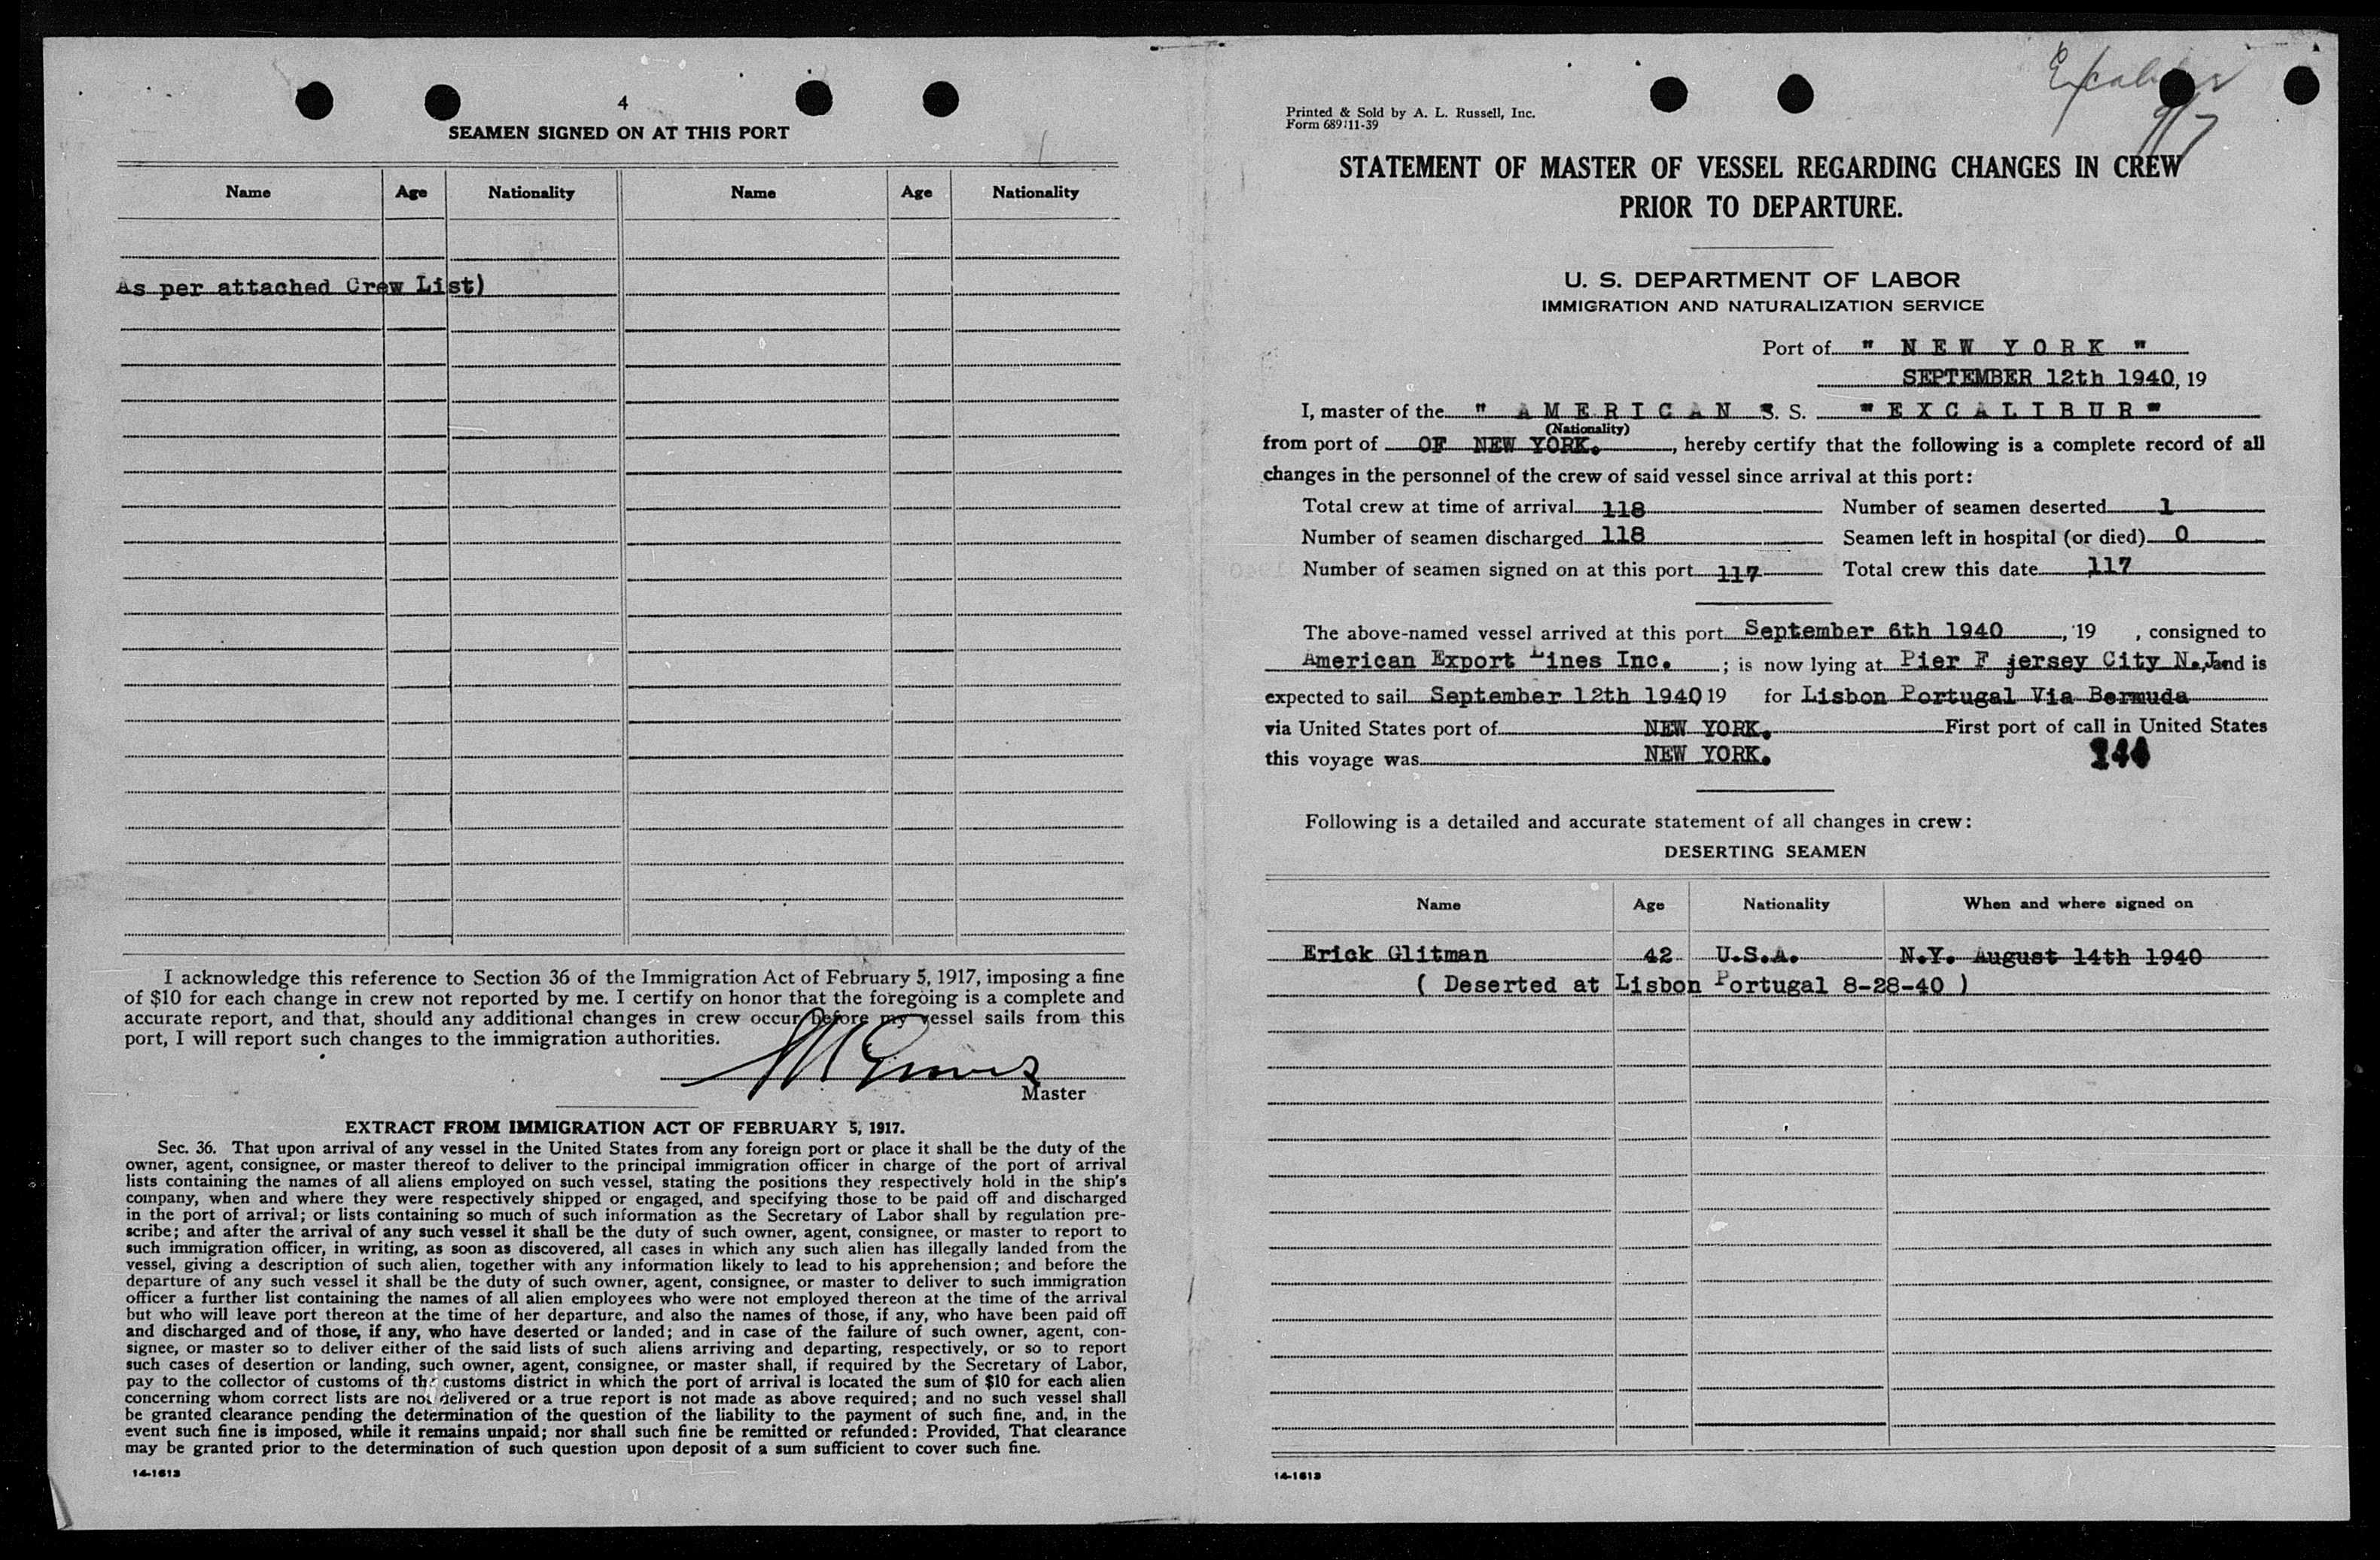 4
SEAMEN SIGNED ON AT THIS PORT
Name Age Nationality Name Age Nationality
As per attached Crew List)
I acknowledge this reference to Section 36 of the Immigration Act of February 5, 1917, imposing a fine
of $10 for each change in crew not reported by me. I certify on honor that the foregoing is a complete and
accurate report, and that, should any additional changes in crew occur before my vessel sails from this
port, I will report such changes to the immigration authorities.
Master
EXTRACT FROM IMMIGRATION ACT OF FEBRUARY 5, 1917.
Sec. 36. That upon arrival of any vessel in the United States from any foreign port or place it shall be the duty of the
owner, agent, consignee, or master thereof to deliver to the principal immigration officer in charge of the port of arrival
lists containing the names of all aliens employed on such vessel, stating the positions they respectively hold in the ship's
company, when and where they were respectively shipped or engaged, and specifying those to be paid off and discharged
in the port of arrival; or lists containing so much of such information as the Secretary of Labor shall by regulation pre-
scribe; and after the arrival of any such vessel it shall be the duty of such owner, agent, consignee, or master to report to
such immigration officer, in writing, as soon as discovered, all cases in which any such alien has illegally landed from the
vessel, giving a description of such alien, together with any information likely to lead to his apprehension; and before the
departure of any such vessel it shall be the duty of such owner, agent, consignee, or master to deliver to such immigration
officer a further list containing the names of all alien employees who were not employed thereon at the time of the arrival
but who will leave port thereon at the time of her departure, and also the names of those, if any, who have been paid off
and discharged and of those, if any, who have deserted or landed; and in case of the failure of such owner, agent, con-
signee, or master so to deliver either of the said lists of such aliens arriving and departing, respectively, or so to report
such cases of desertion or landing, such owner, agent, consignee, or master shall, if required by the Secretary of Labor,
pay to the collector of customs of the customs district in which the port of arrival is located the sum of $10 for each alien
concerning whom correct lists are not delivered or a true report is not made as above required; and no such vessel shall
be granted clearance pending the determination of the question of the liability to the payment of such fine, and, in the
event such fine is imposed, while it remains unpaid; nor shall such fine be remitted or refunded: Provided, That clearance
may be granted prior to the determination of such question upon deposit of a sum sufficient to cover such fine.
14-1613
Excalibur
9/7
Printed & Sold by A. L. Russell, Inc.
Form 689:11-39
STATEMENT OF MASTER OF VESSEL REGARDING CHANGES IN CREW
PRIOR TO DEPARTURE.
U. S. DEPARTMENT OF LABOR
IMMIGRATION AND NATURALIZATION SERVICE
Port of " NEW YORK "
SEPTEMBER 12th 1940, 19
I, master of the " AMERICAN S. S. "EXCALIBUR"
(Nationality)
from port of OF NEW YORK. , hereby certify that the following is a complete record of all
changes in the personnel of the crew of said vessel since arrival at this port:
Total crew at time of arrival 118 Number of seamen deserted 1
Number of seamen discharged 118 Seamen left in hospital (or died) 0
Number of seamen signed on at this port 117 Total crew this date 117
The above-named vessel arrived at this port September 6th 1940 , 19 , consigned to
American Export Lines Inc. ; is now lying at Pier F jersey City N.J, and is
expected to sail September 12th 1940 19 for Lisbon Portugal Via Bermuda
via United States port of NEW YORK. First port of call in United States
this voyage was NEW YORK.
Following is a detailed and accurate statement of all changes in crew:
DESERTING SEAMEN
Name Age Nationality When and where signed on
Erick Glitman 42 U.S.A. N.Y. August 14th 1940
( Deserted at Lisbon Portugal 8-28-40 )
14-1613